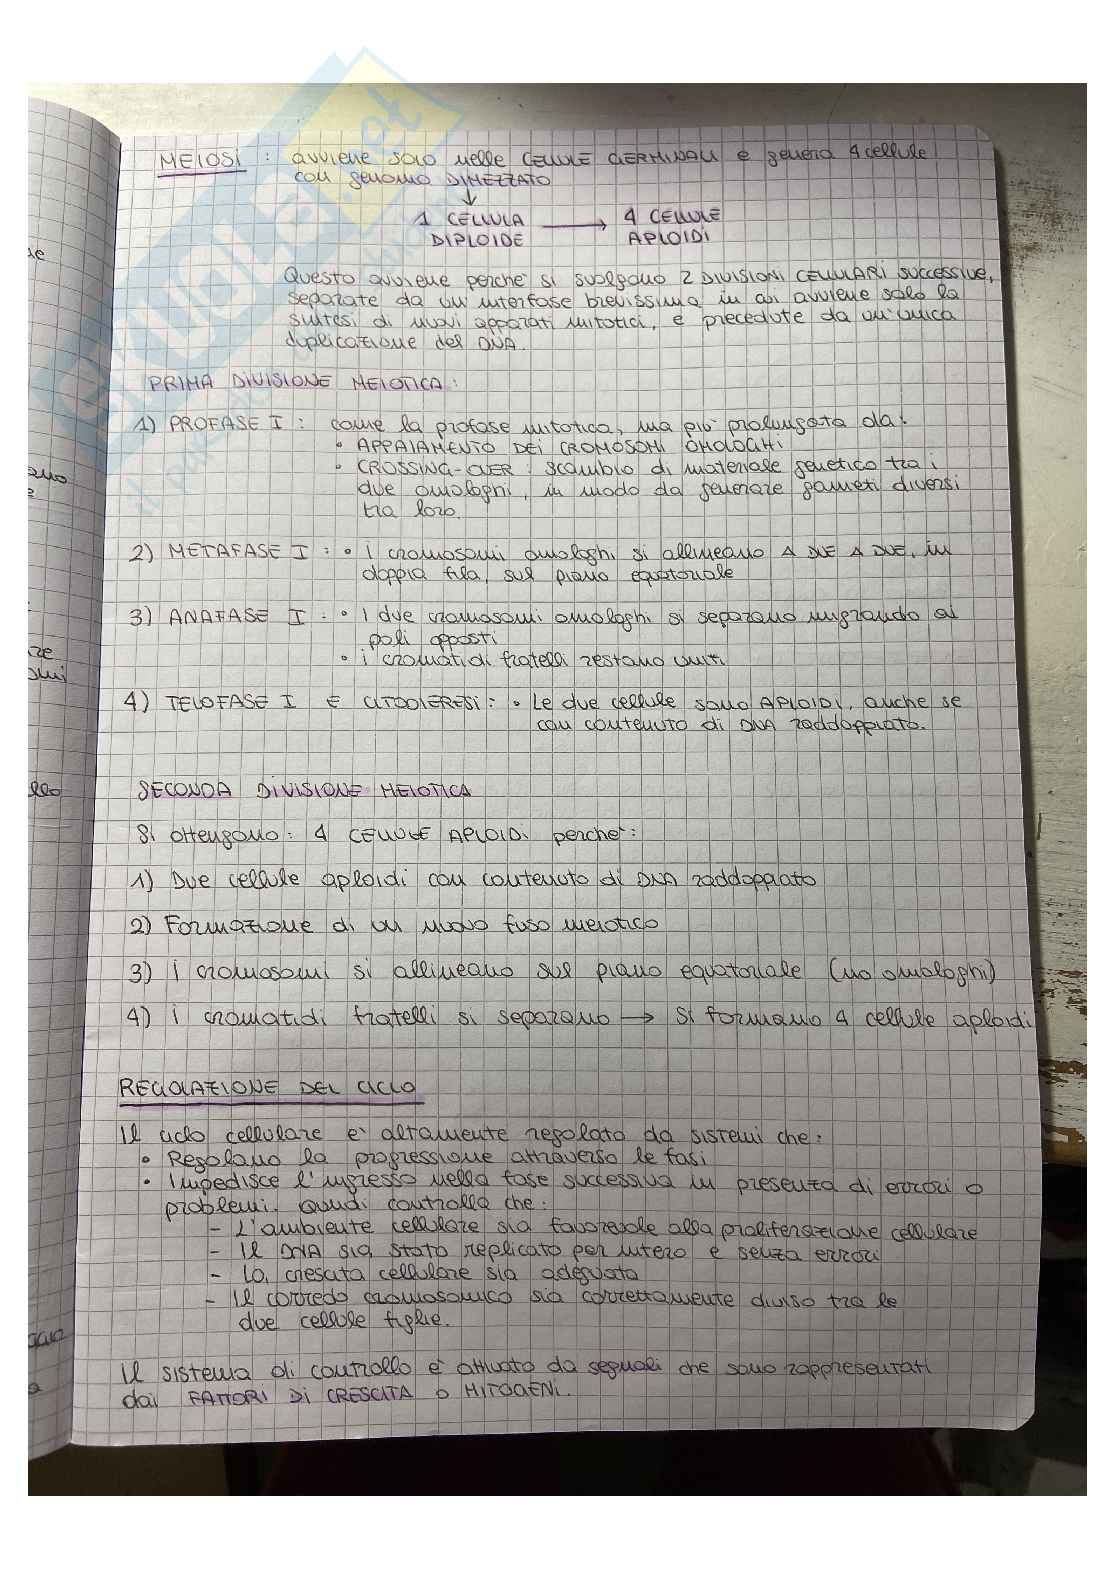 MEIOSI : avviene solo nelle CELLULE GERMINALI e genera 4 cellule
con genoma DIMEZZATO
↓
1 CELLULA → 4 CELLULE
DIPLOIDE APLOIDI
Questo avviene perché si svolgono 2 DIVISIONI CELLULARI SUCCESSIVE,
separate da un'interfase brevissima in cui avviene solo la
sintesi di nuovi apparati mitotici, e precedute da un'unica
duplicazione del DNA.
PRIMA DIVISIONE MEIOTICA:
1) PROFASE I : come la profase mitotica, ma più prolungata da:
• APPAIAMENTO DEI CROMOSOMI OMOLOGHI
• CROSSING-OVER : scambio di materiale genetico tra i
due omologhi, in modo da generare gameti diversi
tra loro.
2) METAFASE I : • i cromosomi omologhi si allineano A DUE A DUE, in
doppia fila, sul piano equatoriale
3) ANAFASE I : • I due cromosomi omologhi si separano migrando ai
poli opposti
• i cromatidi fratelli restano uniti
4) TELOFASE I E CITODIERESI : • Le due cellule sono APLOIDI, anche se
con contenuto di DNA raddoppiato.
SECONDA DIVISIONE MEIOTICA
Si ottengono : 4 CELLULE APLOIDI perché :
1) Due cellule aploidi con contenuto di DNA raddoppiato
2) Formazione di un nuovo fuso meiotico
3) i cromosomi si allineano sul piano equatoriale (no omologhi)
4) i cromatidi fratelli si separano → si formano 4 cellule aploidi
REGOLAZIONE DEL CICLO
Il ciclo cellulare è altamente regolato da sistemi che :
• Regolano la progressione attraverso le fasi
• Impedisce l'ingresso nella fase successiva in presenza di errori o
problemi. Quindi controlla che :
- L'ambiente cellulare sia favorevole alla proliferazione cellulare
- Il DNA sia stato replicato per intero e senza errori
- La crescita cellulare sia adeguata
- Il corredo cromosomico sia correttamente diviso tra le
due cellule figlie.
Il sistema di controllo è attivato da segnali che sono rappresentati
dai FATTORI DI CRESCITA o MITOGENI.